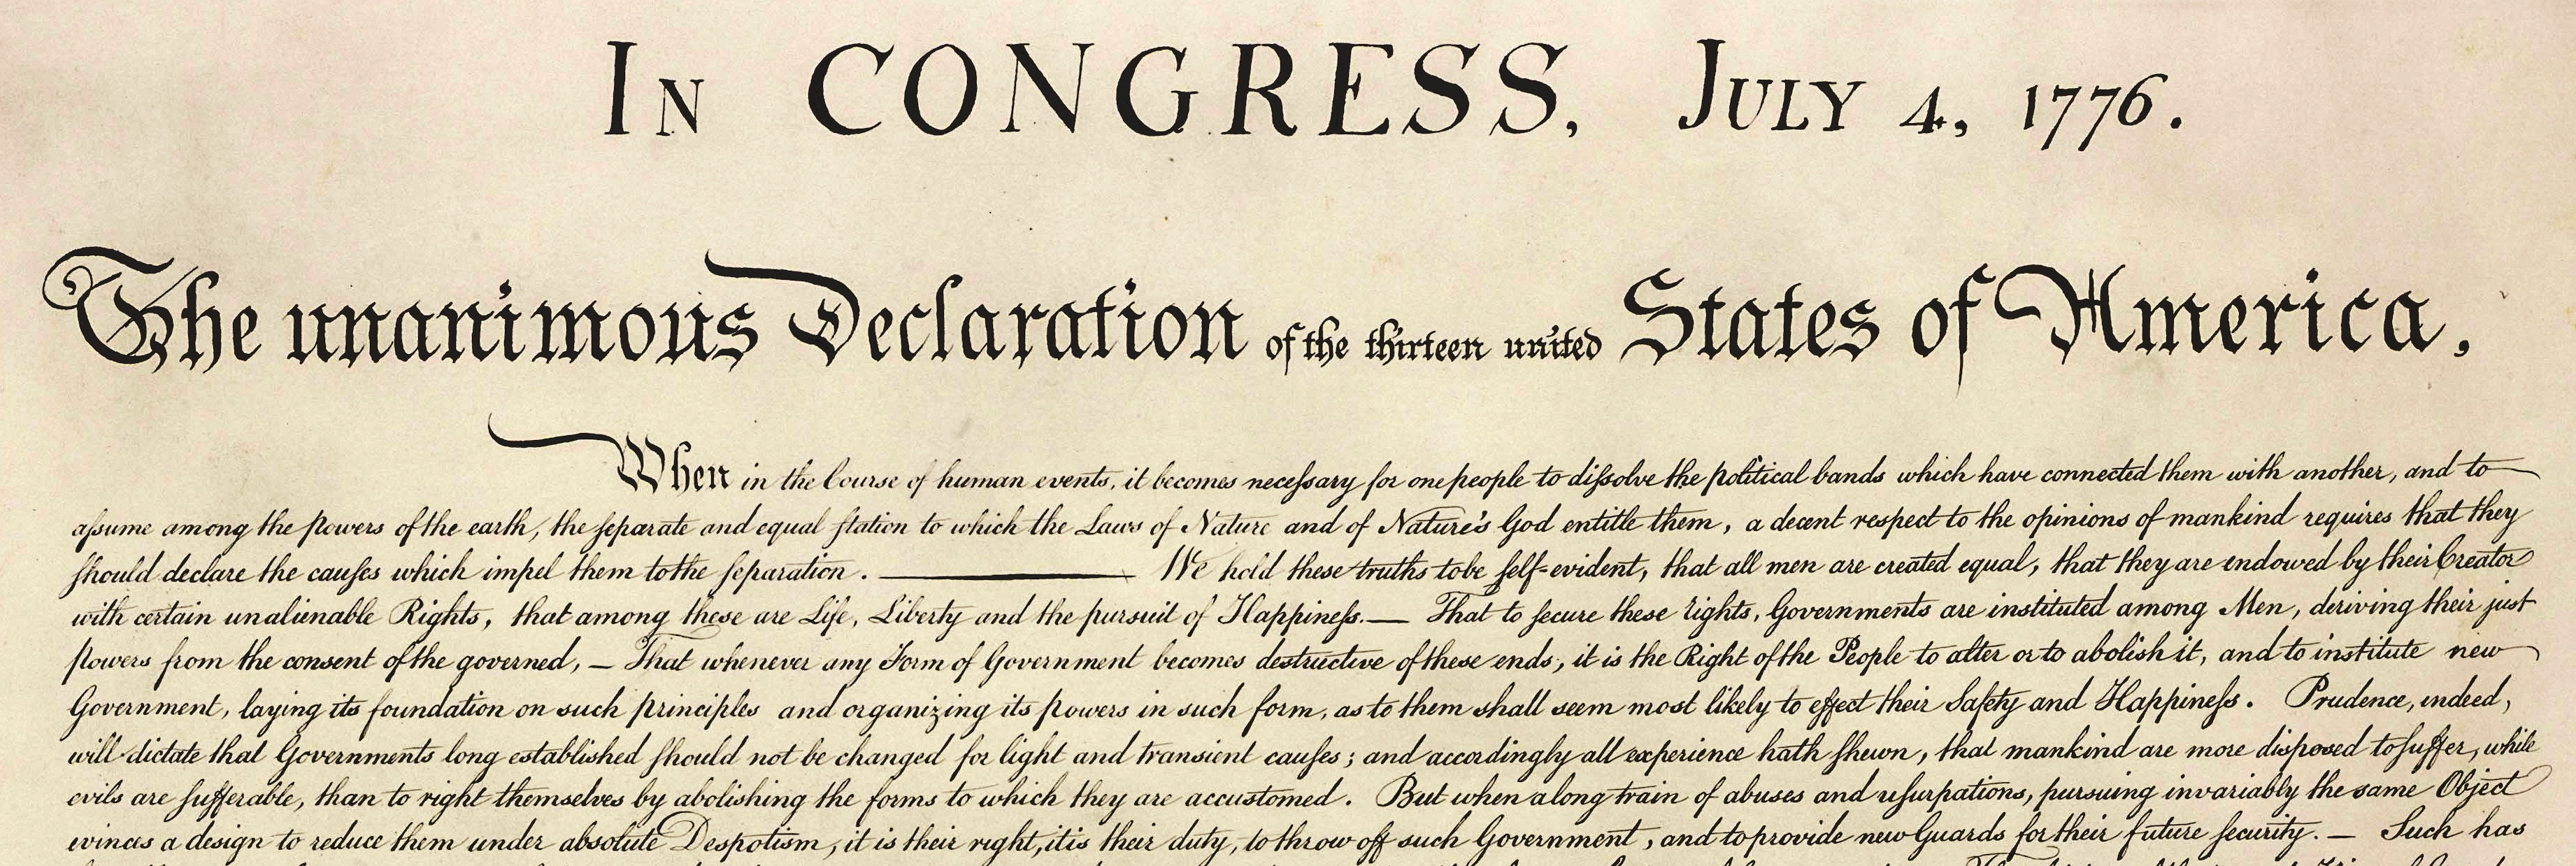 In CONGRESS, July 4, 1776.
The unanimous Declaration of the thirteen united States of America,
When in the Course of human events, it becomes necessary for one people to dissolve the political bands which have connected them with another, and to
assume among the powers of the earth, the separate and equal station to which the Laws of Nature and of Nature's God entitle them, a decent respect to the opinions of mankind requires that they
should declare the causes which impel them to the separation. ——— We hold these truths to be self-evident, that all men are created equal, that they are endowed by their Creator
with certain unalienable Rights, that among these are Life, Liberty and the pursuit of Happiness. — That to secure these rights, Governments are instituted among Men, deriving their just
powers from the consent of the governed, — That whenever any Form of Government becomes destructive of these ends, it is the Right of the People to alter or to abolish it, and to institute new
Government, laying its foundation on such principles and organizing its powers in such form, as to them shall seem most likely to effect their Safety and Happiness. Prudence, indeed,
will dictate that Governments long established should not be changed for light and transient causes; and accordingly all experience hath shewn, that mankind are more disposed to suffer, while
evils are sufferable, than to right themselves by abolishing the forms to which they are accustomed. But when a long train of abuses and usurpations, pursuing invariably the same Object
evinces a design to reduce them under absolute Despotism, it is their right, it is their duty, to throw off such Government, and to provide new Guards for their future security. — Such has